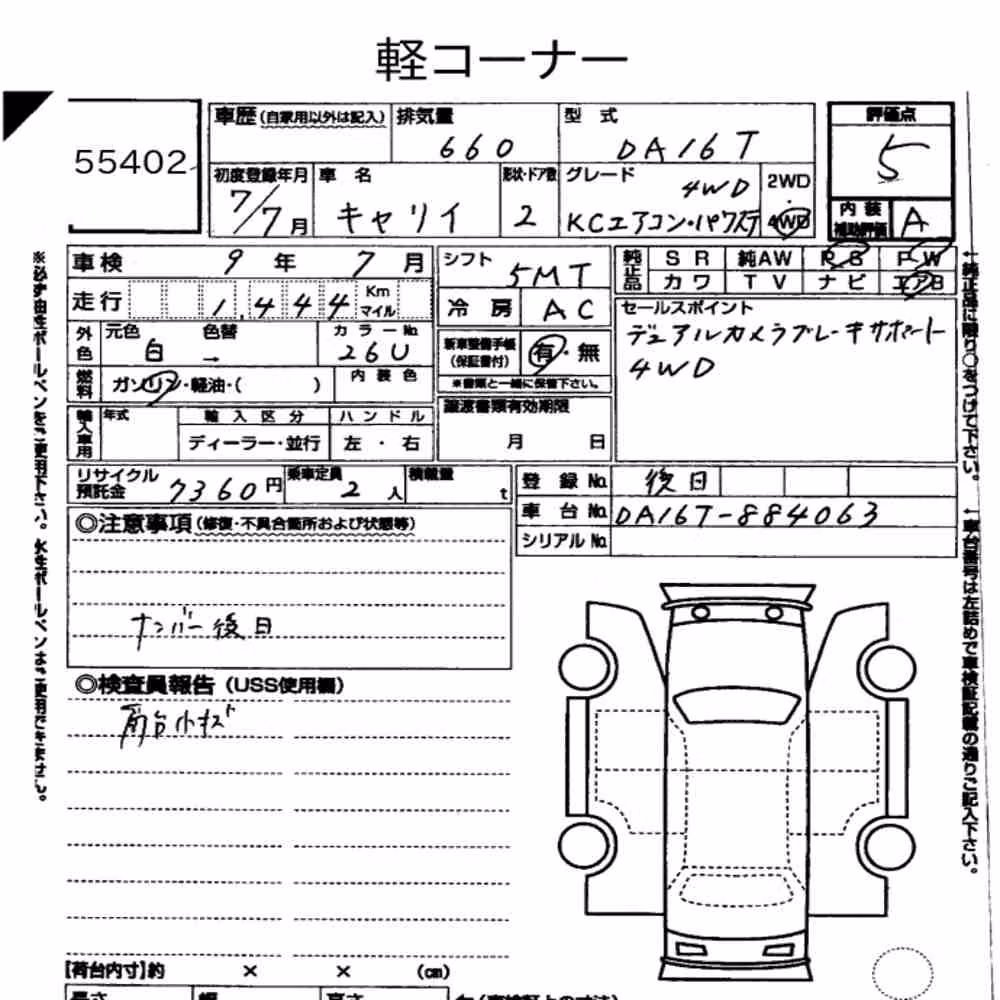 軽コーナー
55402
車歴(自家用以外は記入)
排気量
660
型 式
DA16T
評価点
5
初度登録年月
7/7月
車 名
キャリイ
形状・ドア数
2
グレード
4WD
KCエアコン・パワステ
2WD
・
4WD
内 装
補助評価
A
車検 9年 7月
シフト
5MT
純正品
SR 純AW PS PW
カワ TV ナビ エアB
走行 1,444 Km
マイル
冷 房 AC
セールスポイント
デュアルカメラブレーキサポート
4WD
外色
元色 色替
白 →
カラーNo.
26U
新車整備手帳
(保証書付)
有・無
※書類と一緒に保管下さい。
燃料
ガソリン・軽油・( )
内 装 色
輸入車用
年式
輸 入 区 分
ディーラー・並行
ハ ン ド ル
左 ・ 右
譲渡書類有効期限
月 日
リサイクル
預託金 7360円
乗車定員
2人
積載量
t
登 録 No. 後日
車 台 No. DA16T-884063
シリアル No.
◎注意事項(修復・不具合箇所および状態等)
ナンバー後日
◎検査員報告(USS使用欄)
荷台小キズ
【荷台内寸】約 × × (cm)
※必ず油性ボールペンをご使用下さい。水性ボールペンはご使用できません。
←純正品に限り○をつけて下さい。
←車台番号は左詰めで車検証記載の通りご記入下さい。